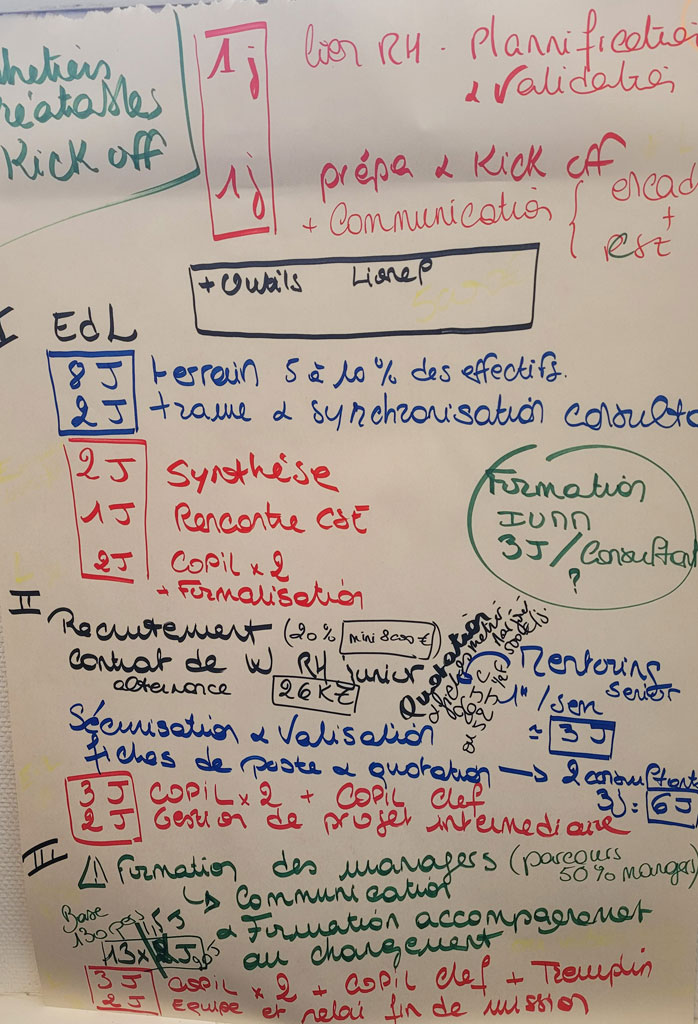 Kick off
1j lien RH - Plannification
& Validation
1j prépa & Kick off
+ Communication { encad
+
CSE
+ Outils Lionel
I EdL
8 J terrain 5 à 10 % des effectifs.
2 J trame & synchronisation consulta
2 J Synthèse
1 J Rencontre CSE
2J COPIL x 2
+ Formalisation
Formation
3 J / Consultan
?
II Recrutement (20% mini 8000 €)
contrat de W RH junior
alternance 26 K€
Quotation
Mentoring
Senior
1h / sem
= 3 J
Sécurisation & Validation
fiches de poste & quotation → 2 consultants
3j = 6 J
3 J COPIL x 2 + COPIL clef
2 J Gestion de projet intermediaire
III ⚠ Formation des managers (parcours
50% manger)
↳ Communication
& Formation accompagnement
au changement
Base
130
13 x
3 J COPIL x 2 + COPIL clef + Tremplin
2 J Equipe et relai fin de mission